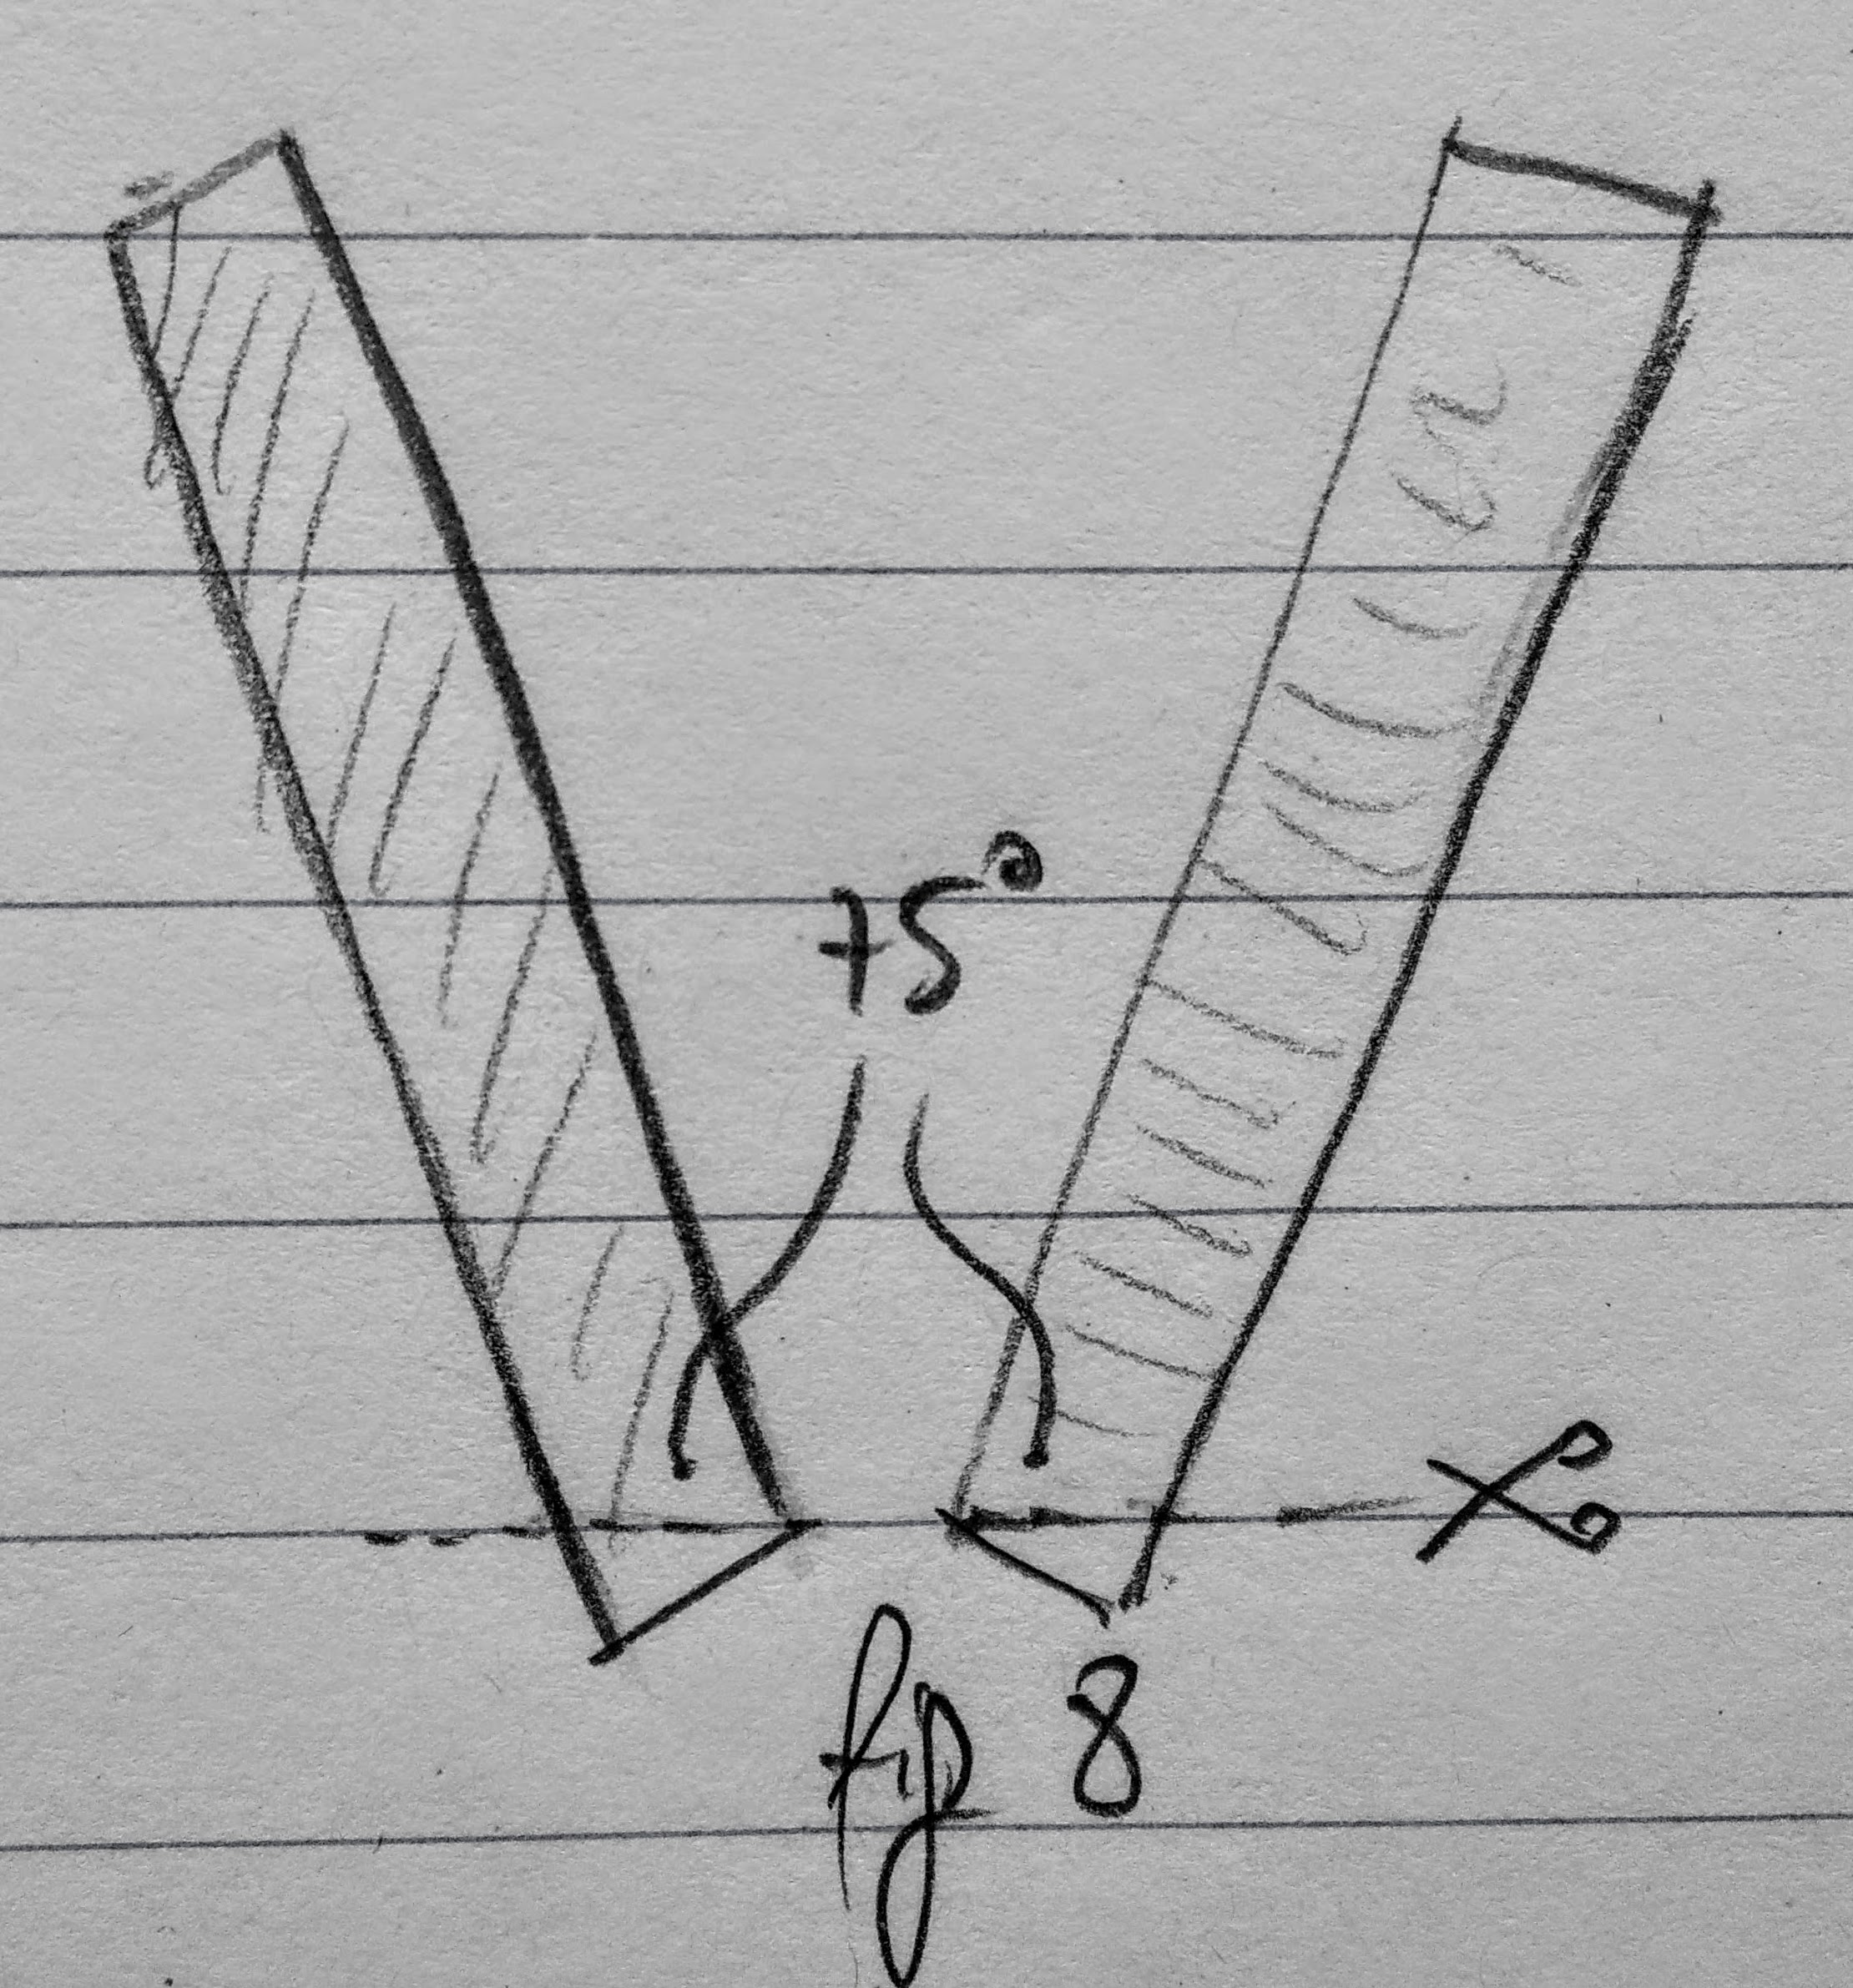 75°
fig 8